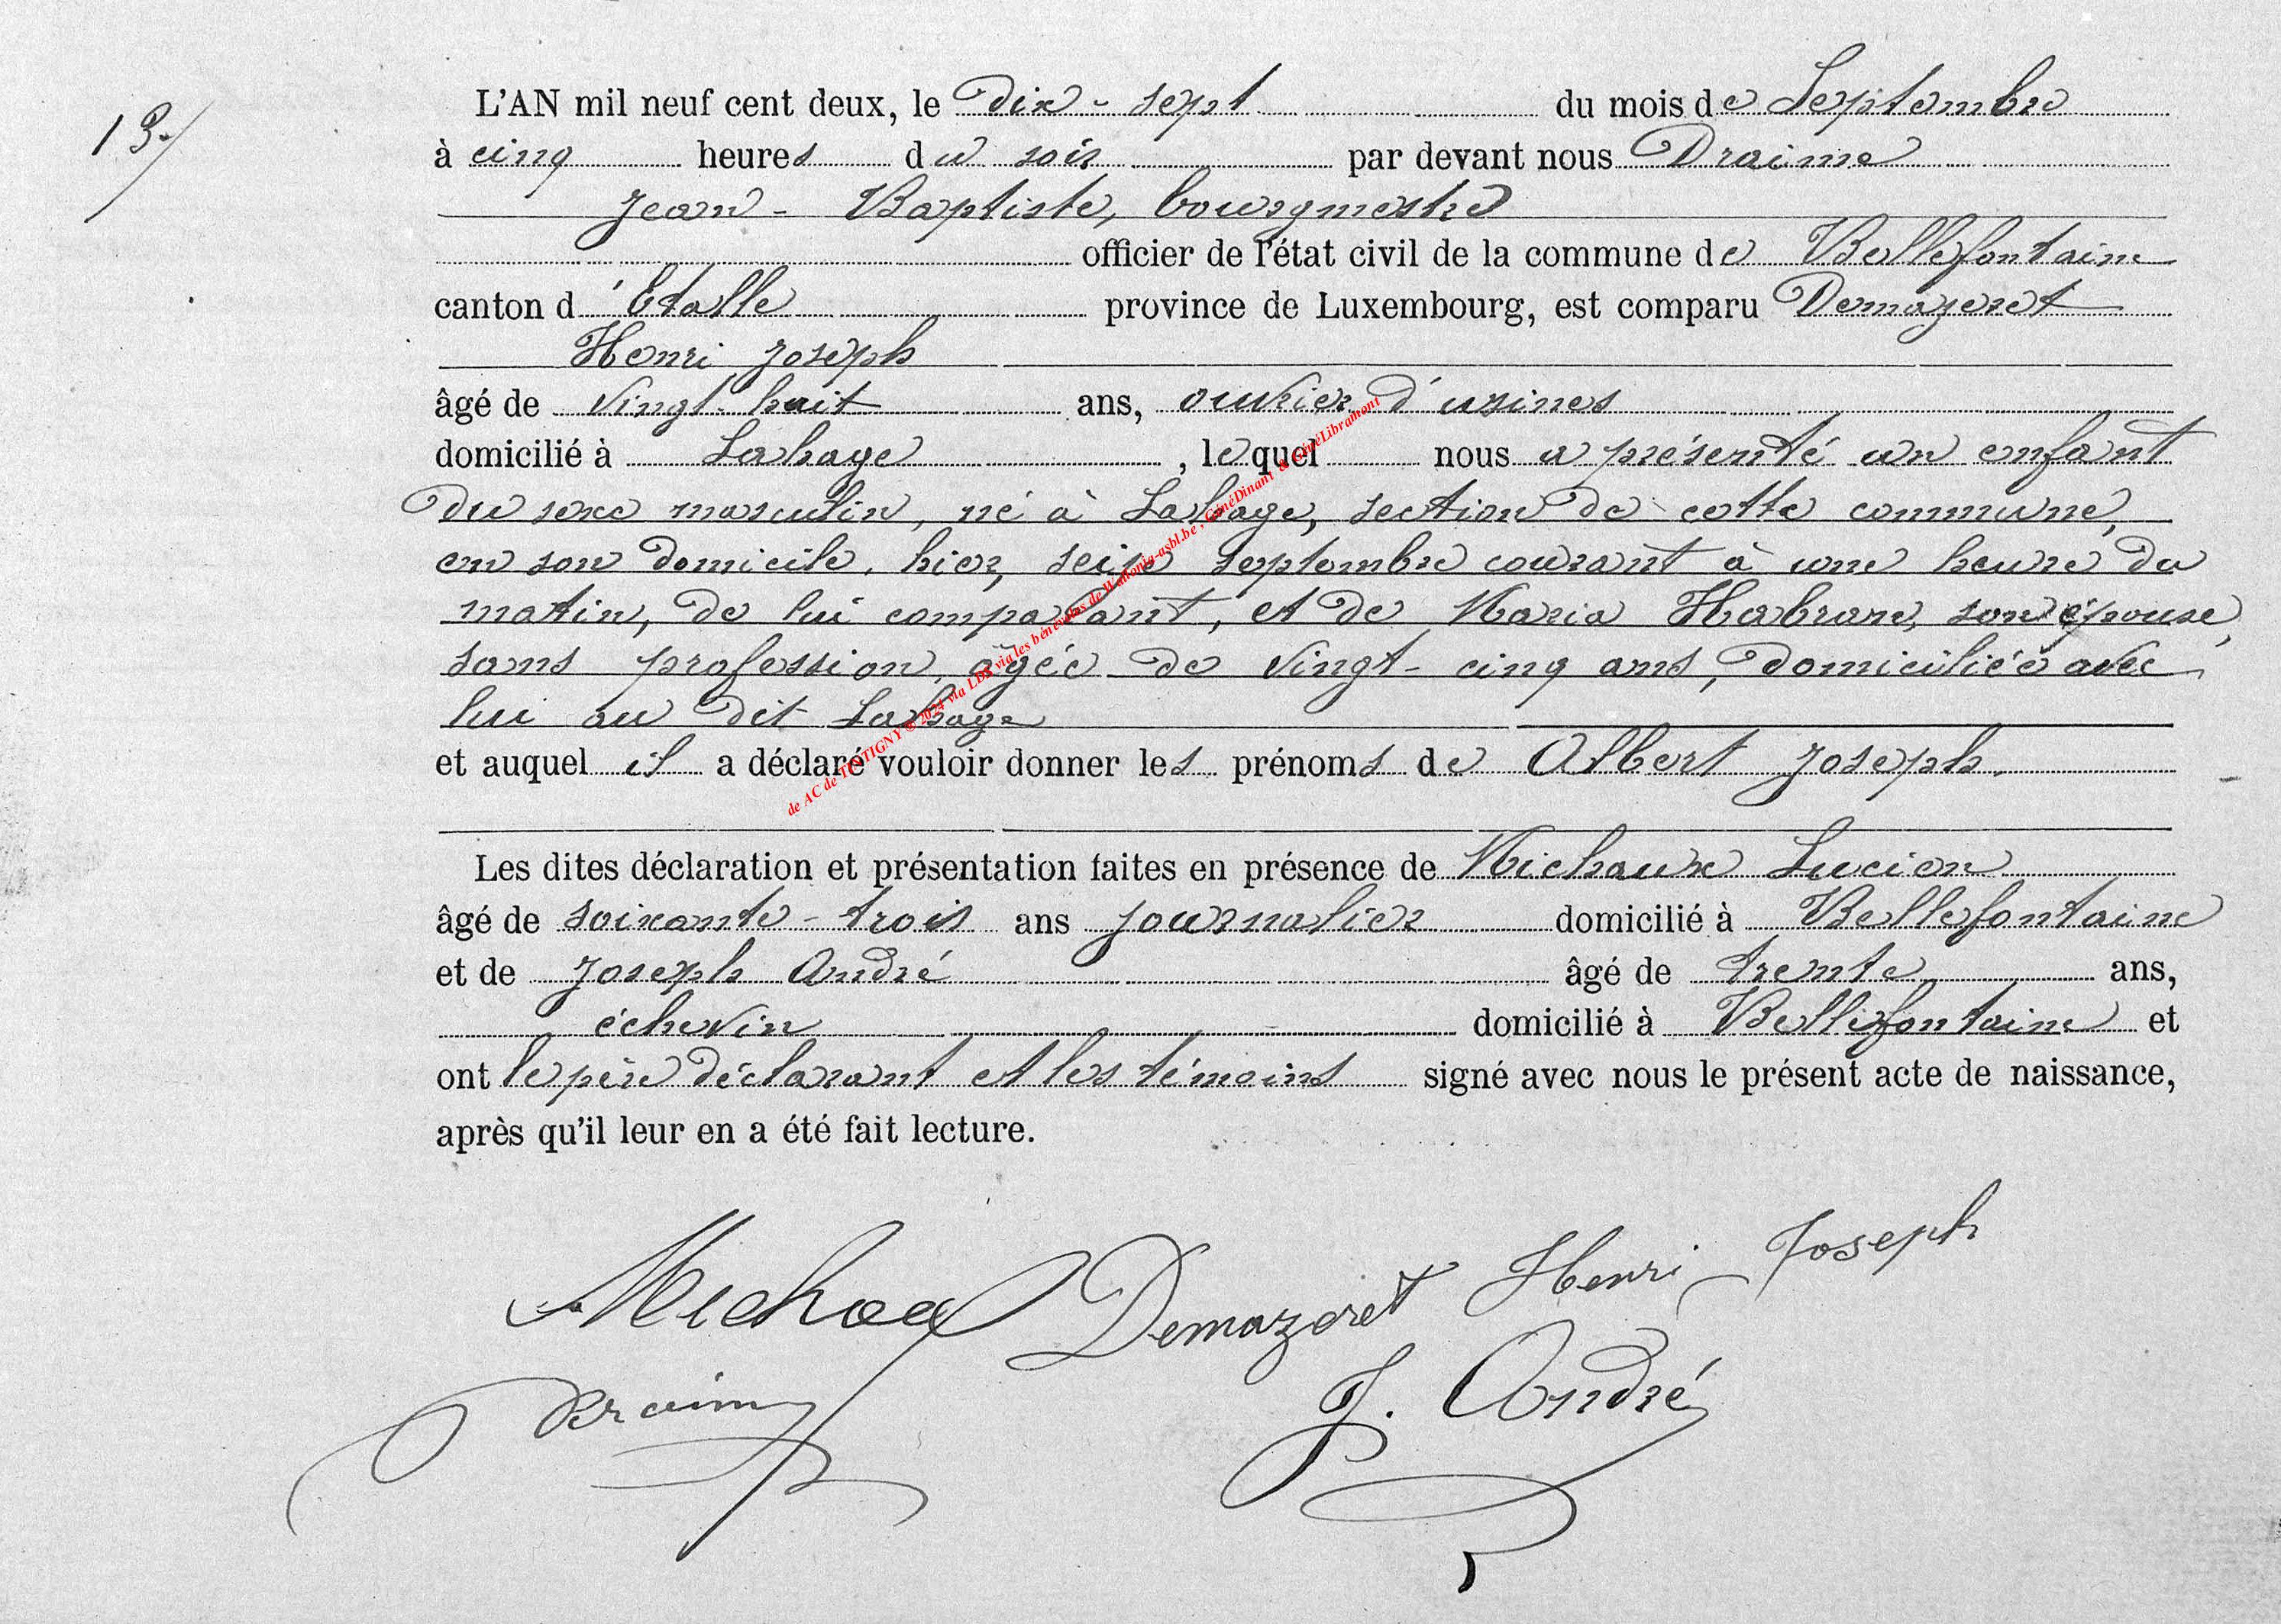 13/
L'AN mil neuf cent deux, le dix-sept du mois de Septembre
à cinq heures du soir par devant nous Draime
Jean-Baptiste, bourgmestre
officier de l'état civil de la commune de Bellefontaine
canton d'Etalle province de Luxembourg, est comparu Demazeret
Henri Joseph
âgé de vingt-huit ans, ouvrier d'usines
domicilié à Lahage, lequel nous a présenté un enfant
du sexe masculin, né à Lahage, section de cette commune,
en son domicile, hier, seize septembre courant à une heure du
matin, de lui comparant, et de Maria Habran, son épouse,
sans profession, âgée de vingt-cinq ans, domiciliée avec
lui au dit Lahage
et auquel il a déclaré vouloir donner les prénoms de Albert Joseph.
Les dites déclaration et présentation faites en présence de Michaux Lucien
âgé de soixante-trois ans journalier domicilié à Bellefontaine
et de Joseph André âgé de trente ans,
échevin domicilié à Bellefontaine et
ont le père déclarant et les témoins signé avec nous le présent acte de naissance,
après qu'il leur en a été fait lecture.
Demazeret Henri Joseph
Draime
J. André
de AC de TINTIGNY © 2024 via LDS via les bénévoles de Wallonia-asbl.be, GénéDinant & GénéLibramont